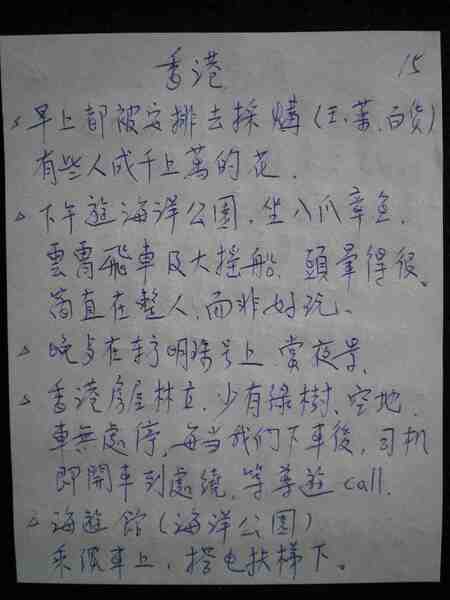 香港
15
△早上都被安排去採購(玉、葯、百貨)
有些人成千上萬的花.
△下午遊海洋公園.坐八爪章魚.
雲霄飛車及大搖船.頭暈得很、
簡直在整人,而非好玩、
△晚上在東方明珠号上.賞夜景、
△香港房屋林立.少有綠樹、空地.
車無處停,每当我们下車後,司机
即開車到處繞,等導遊call.
△海遊館(海洋公園)
乘纜車上,搭电扶梯下。